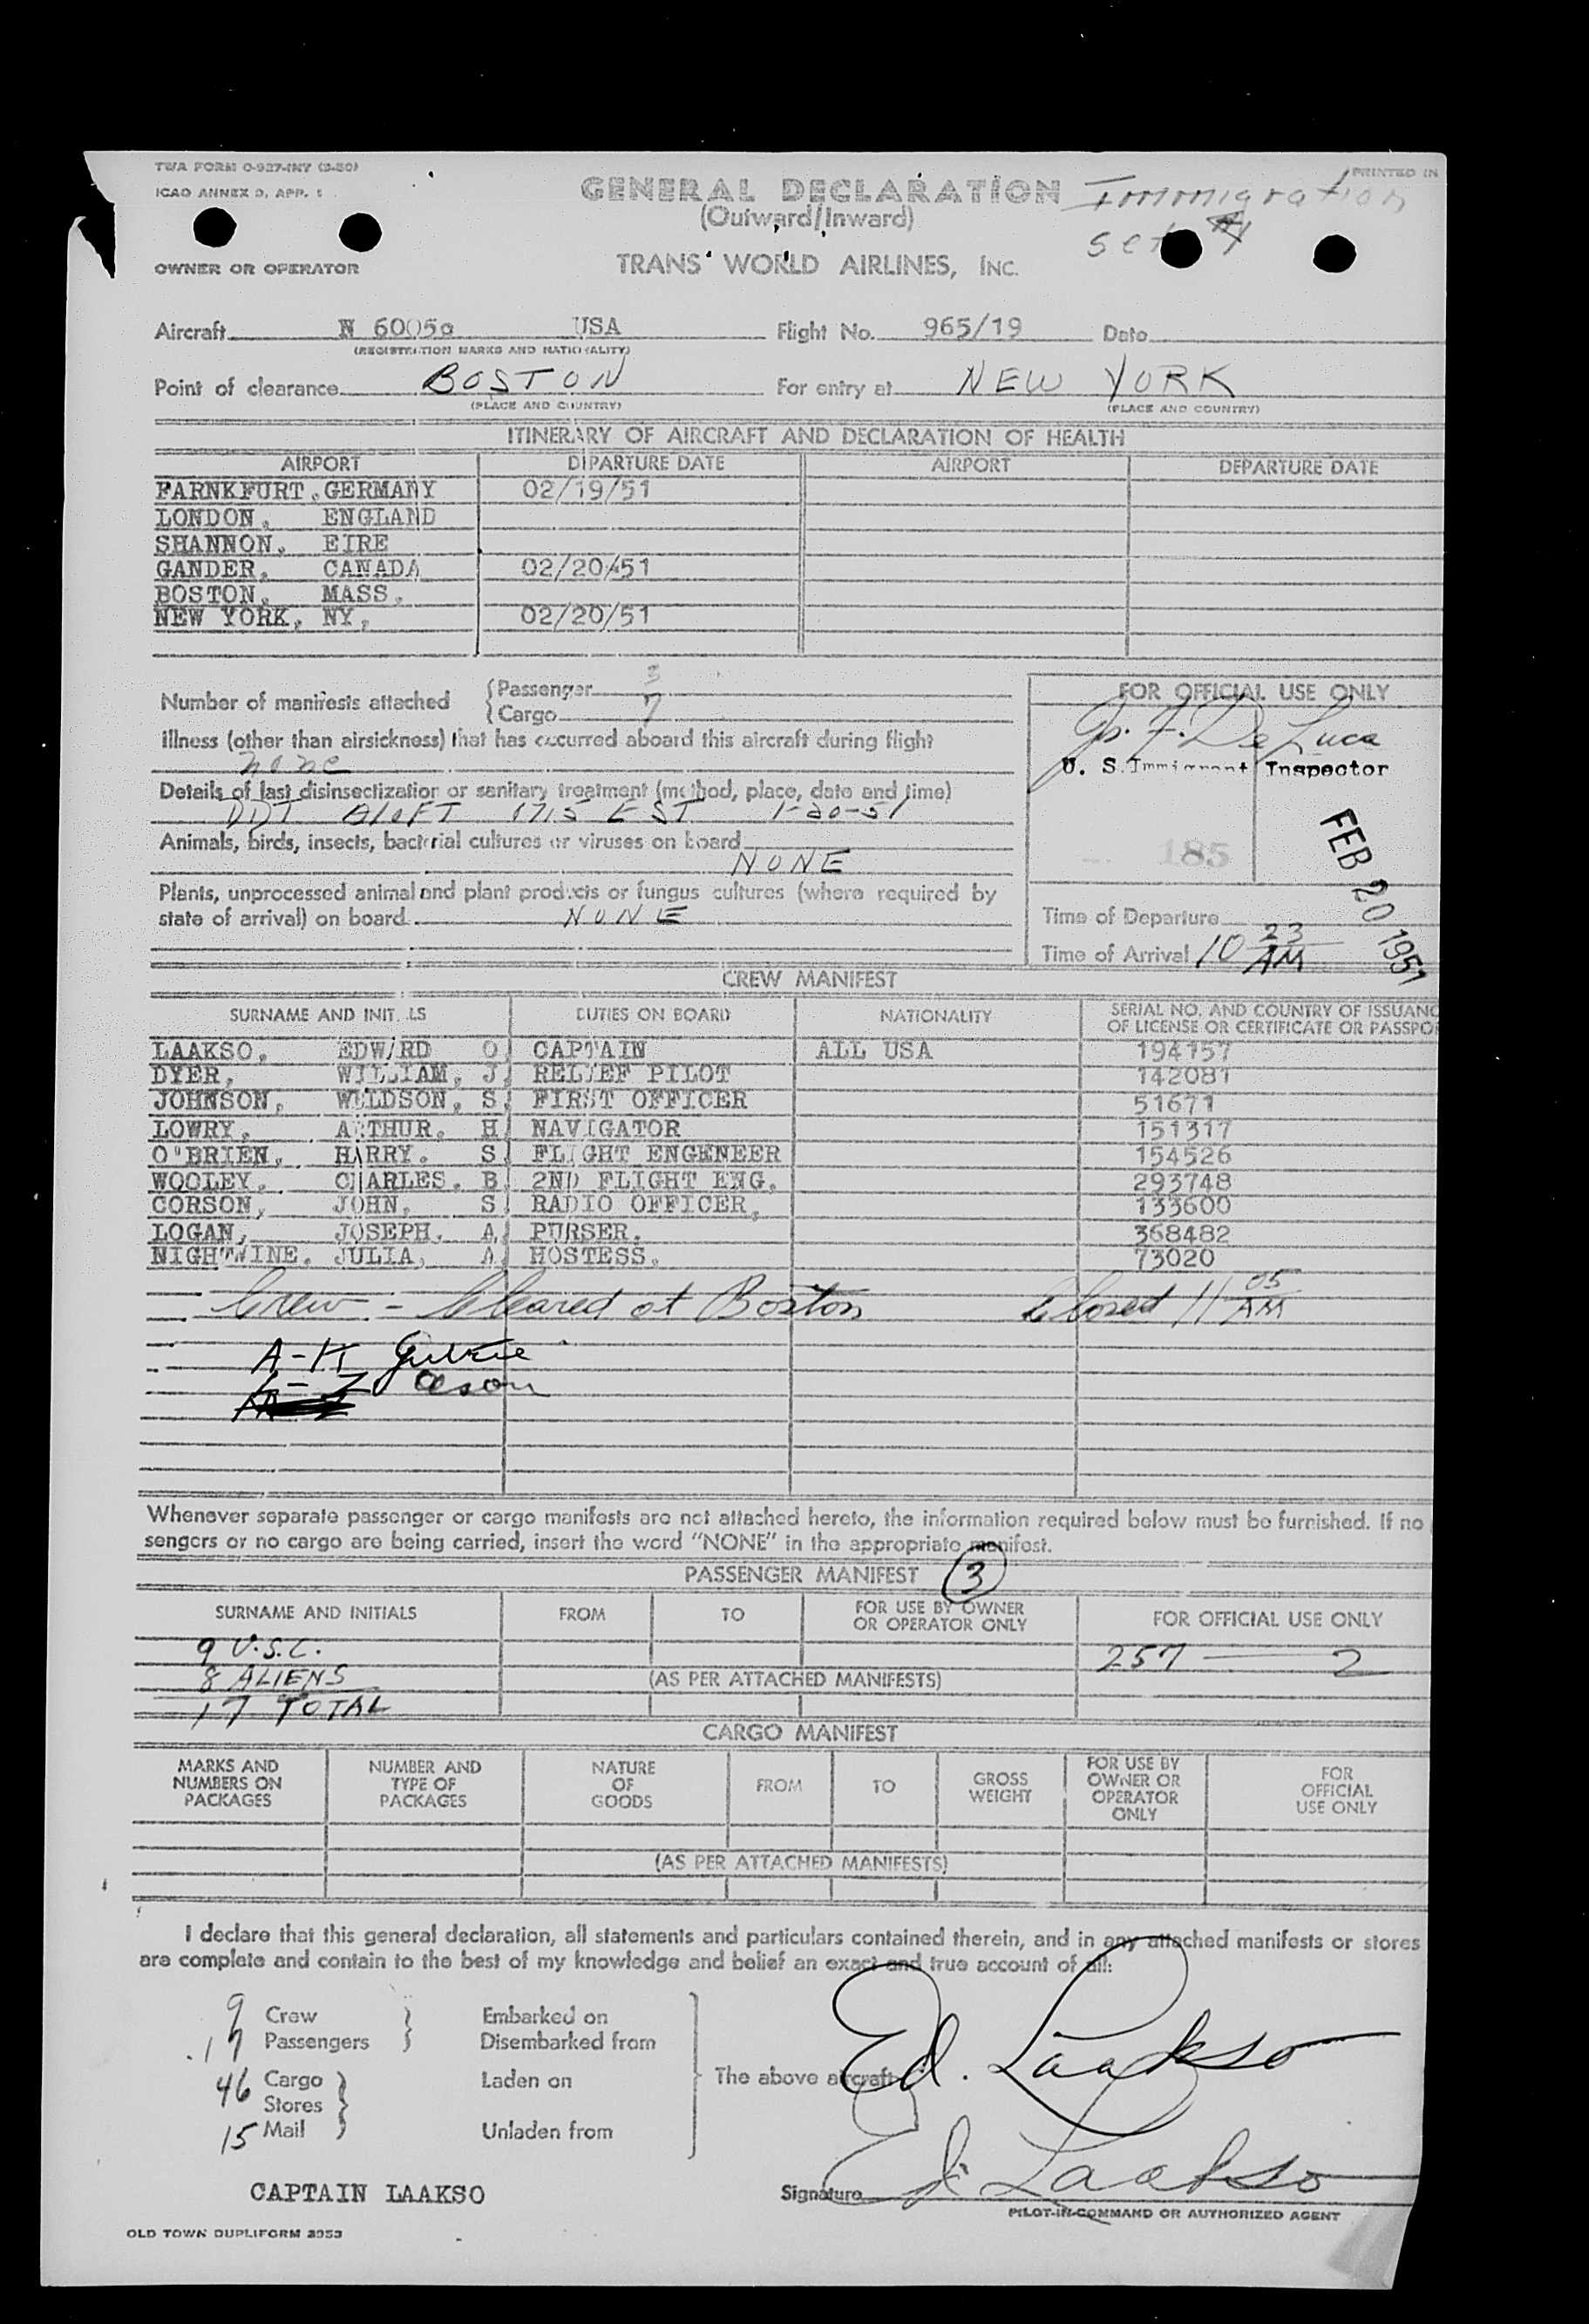 TWA FORM O-937-INT (3-50)
PRINTED IN
ICAO ANNEX 9, APP. 1
GENERAL DECLARATION
Immigration
(Outward/Inward)
set
OWNER OR OPERATOR
TRANS WORLD AIRLINES, INC.
Aircraft N 6005 USA Flight No. 965/19 Date
(REGISTRATION MARKS AND NATIONALITY)
Point of clearance BOSTON For entry at NEW YORK
(PLACE AND COUNTRY) (PLACE AND COUNTRY)
ITINERARY OF AIRCRAFT AND DECLARATION OF HEALTH
AIRPORT DEPARTURE DATE AIRPORT DEPARTURE DATE
FARNKFURT,GERMANY 02/19/51
LONDON, ENGLAND
SHANNON, EIRE
GANDER, CANADA 02/20/51
BOSTON, MASS,
NEW YORK, NY, 02/20/51
Number of manifests attached
Passenger 3
Cargo 7
FOR OFFICIAL USE ONLY
De Luca
U. S. Immigrant Inspector
Illness (other than airsickness) that has occurred aboard this aircraft during flight
none
Details of last disinsectization or sanitary treatment (method, place, date and time)
DDT ALOFT 1715 EST 1-20-51
Animals, birds, insects, bacterial cultures or viruses on board
NONE
185
FEB 20 1951
Plants, unprocessed animal and plant products or fungus cultures (where required by
state of arrival) on board NONE
Time of Departure
Time of Arrival 10 23 AM
CREW MANIFEST
SURNAME AND INITIALS DUTIES ON BOARD NATIONALITY SERIAL NO. AND COUNTRY OF ISSUANC
OF LICENSE OR CERTIFICATE OR PASSPO
LAAKSO, EDWARD O. CAPTAIN ALL USA 194157
DYER, WILLIAM, J. RELIEF PILOT 142081
JOHNSON, WILDSON, S. FIRST OFFICER 51671
LOWRY, ARTHUR. H. NAVIGATOR 151317
O'BRIEN, HARRY. S. FLIGHT ENGENEER 154526
WOOLEY, CHARLES, B. 2ND FLIGHT ENG, 293748
CORSON, JOHN, S. RADIO OFFICER, 133600
LOGAN, JOSEPH, A. PURSER, 368482
NIGHTWINE, JULIA, A. HOSTESS, 73020
Crew - Cleared at Boston Closed 11 05 AM
A-K Guthrie
L-Z
Whenever separate passenger or cargo manifests are not attached hereto, the information required below must be furnished. If no
sengers or no cargo are being carried, insert the word "NONE" in the appropriate manifest.
PASSENGER MANIFEST 3
SURNAME AND INITIALS FROM TO FOR USE BY OWNER OR OPERATOR ONLY FOR OFFICIAL USE ONLY
9 U.S.C. 257 — 2
8 ALIENS (AS PER ATTACHED MANIFESTS)
17 TOTAL
CARGO MANIFEST
MARKS AND NUMBERS ON PACKAGES NUMBER AND TYPE OF PACKAGES NATURE OF GOODS FROM TO GROSS WEIGHT FOR USE BY OWNER OR OPERATOR ONLY FOR OFFICIAL USE ONLY
(AS PER ATTACHED MANIFESTS)
I declare that this general declaration, all statements and particulars contained therein, and in any attached manifests or stores
are complete and contain to the best of my knowledge and belief an exact and true account of all:
9 Crew Embarked on
17 Passengers Disembarked from
46 Cargo Laden on The above aircraft
Stores
15 Mail Unladen from
Ed. Laakso
CAPTAIN LAAKSO
Signature Ed. Laakso
PILOT-IN-COMMAND OR AUTHORIZED AGENT
OLD TOWN DUPLIFORM 3953